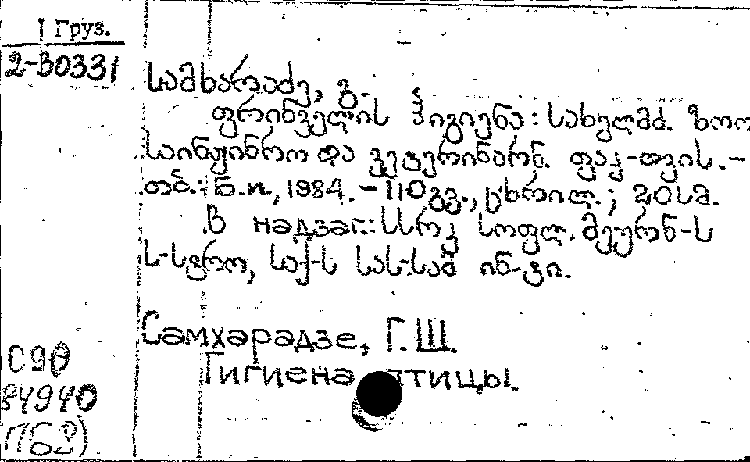 Груз.
2-30331
სამხარაძე, გ.
ფრინველის ჰიგიენა: სახელმძ. ზოო
საინჟინრო და ვეტერინარნ. ფაკ-თვის.–
თბ.: Б.и., 1984.–110გვ., ცხრილ.; 20სმ.
В надзаг.: სსრკ სოფლ. მეურნ-ს
ს-სტრო, საქ-ს სას.-სამ ინ-ტი.
Самхарадзе, Г.Ш.
Гигиена птицы.
С90
84940
(ПБ2)